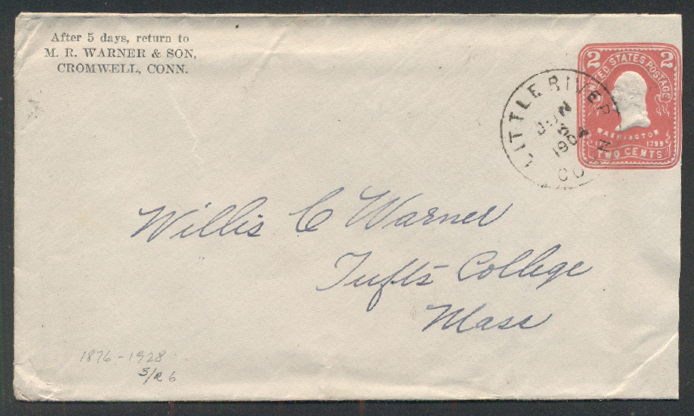 After 5 days, return to
M. R. WARNER & SON,
CROMWELL, CONN.
2 2
UNITED STATES POSTAGE
WASHINGTON
1799
TWO CENTS
LITTLE RIVER
JUN
190
CO
Willis C Warner
Tufts College
Mass
1876-1928
S/R 6